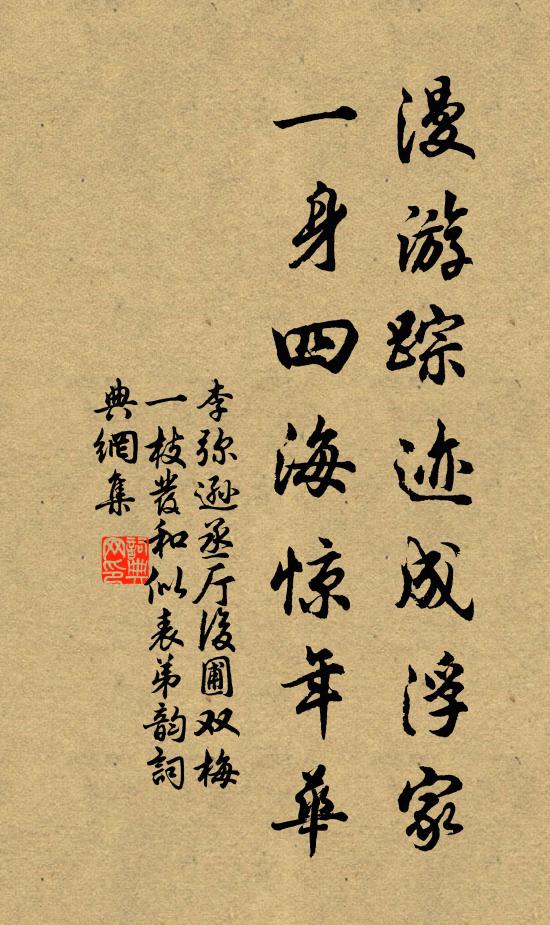 漫游踪迹成浮家
一身四海惊年华
李弥逊丞厅後圃双梅
一枝发和似表弟韵词
典網集
詞典
网印